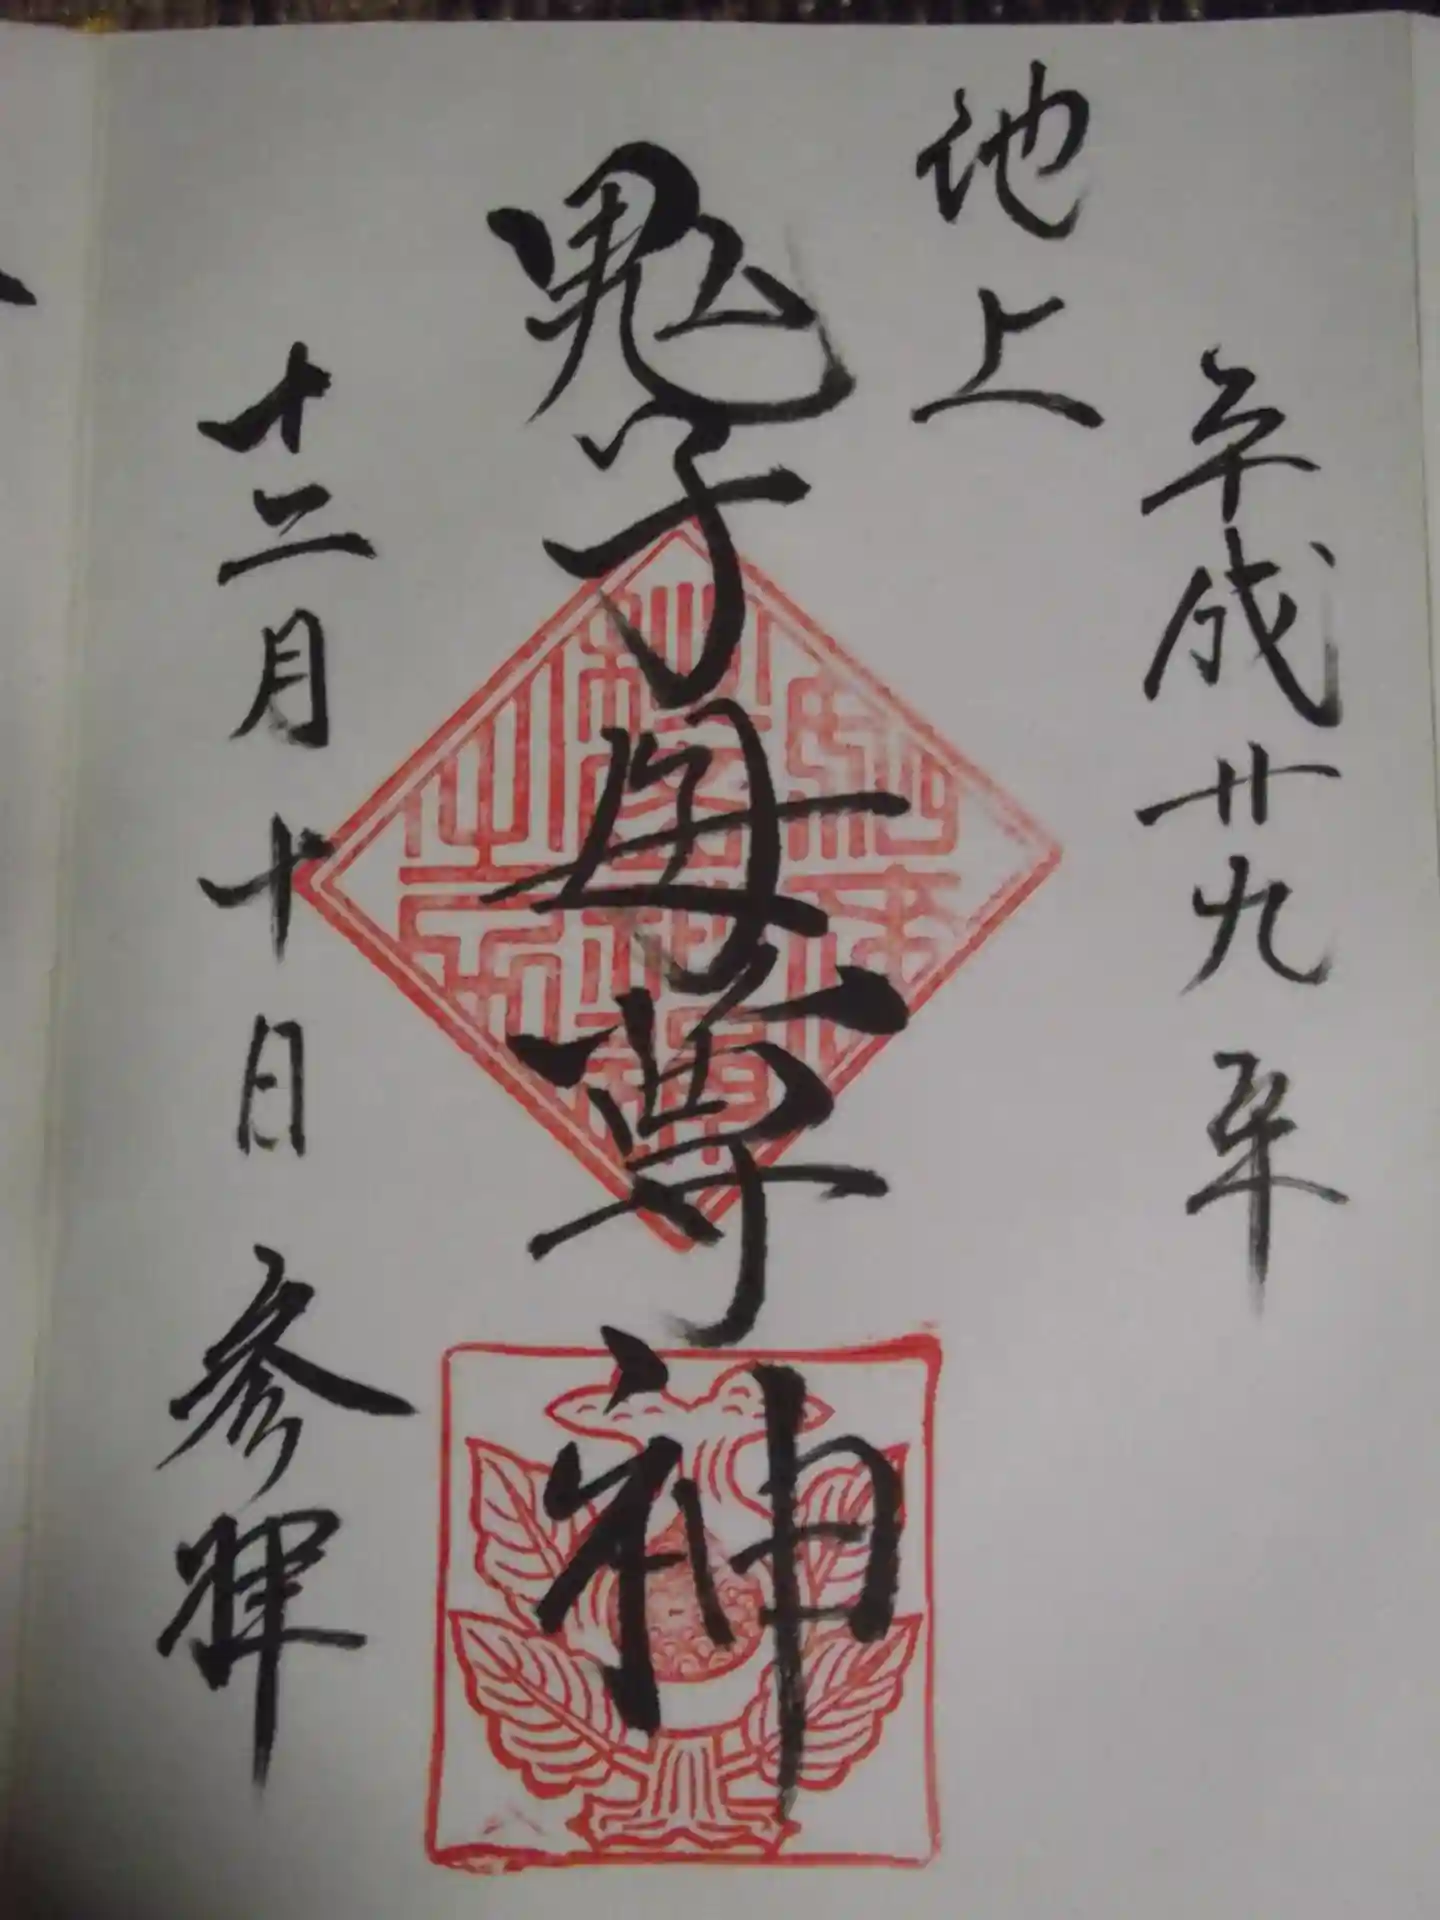 平成廿九年
地上
鬼子母尊神
十二月十日参拝